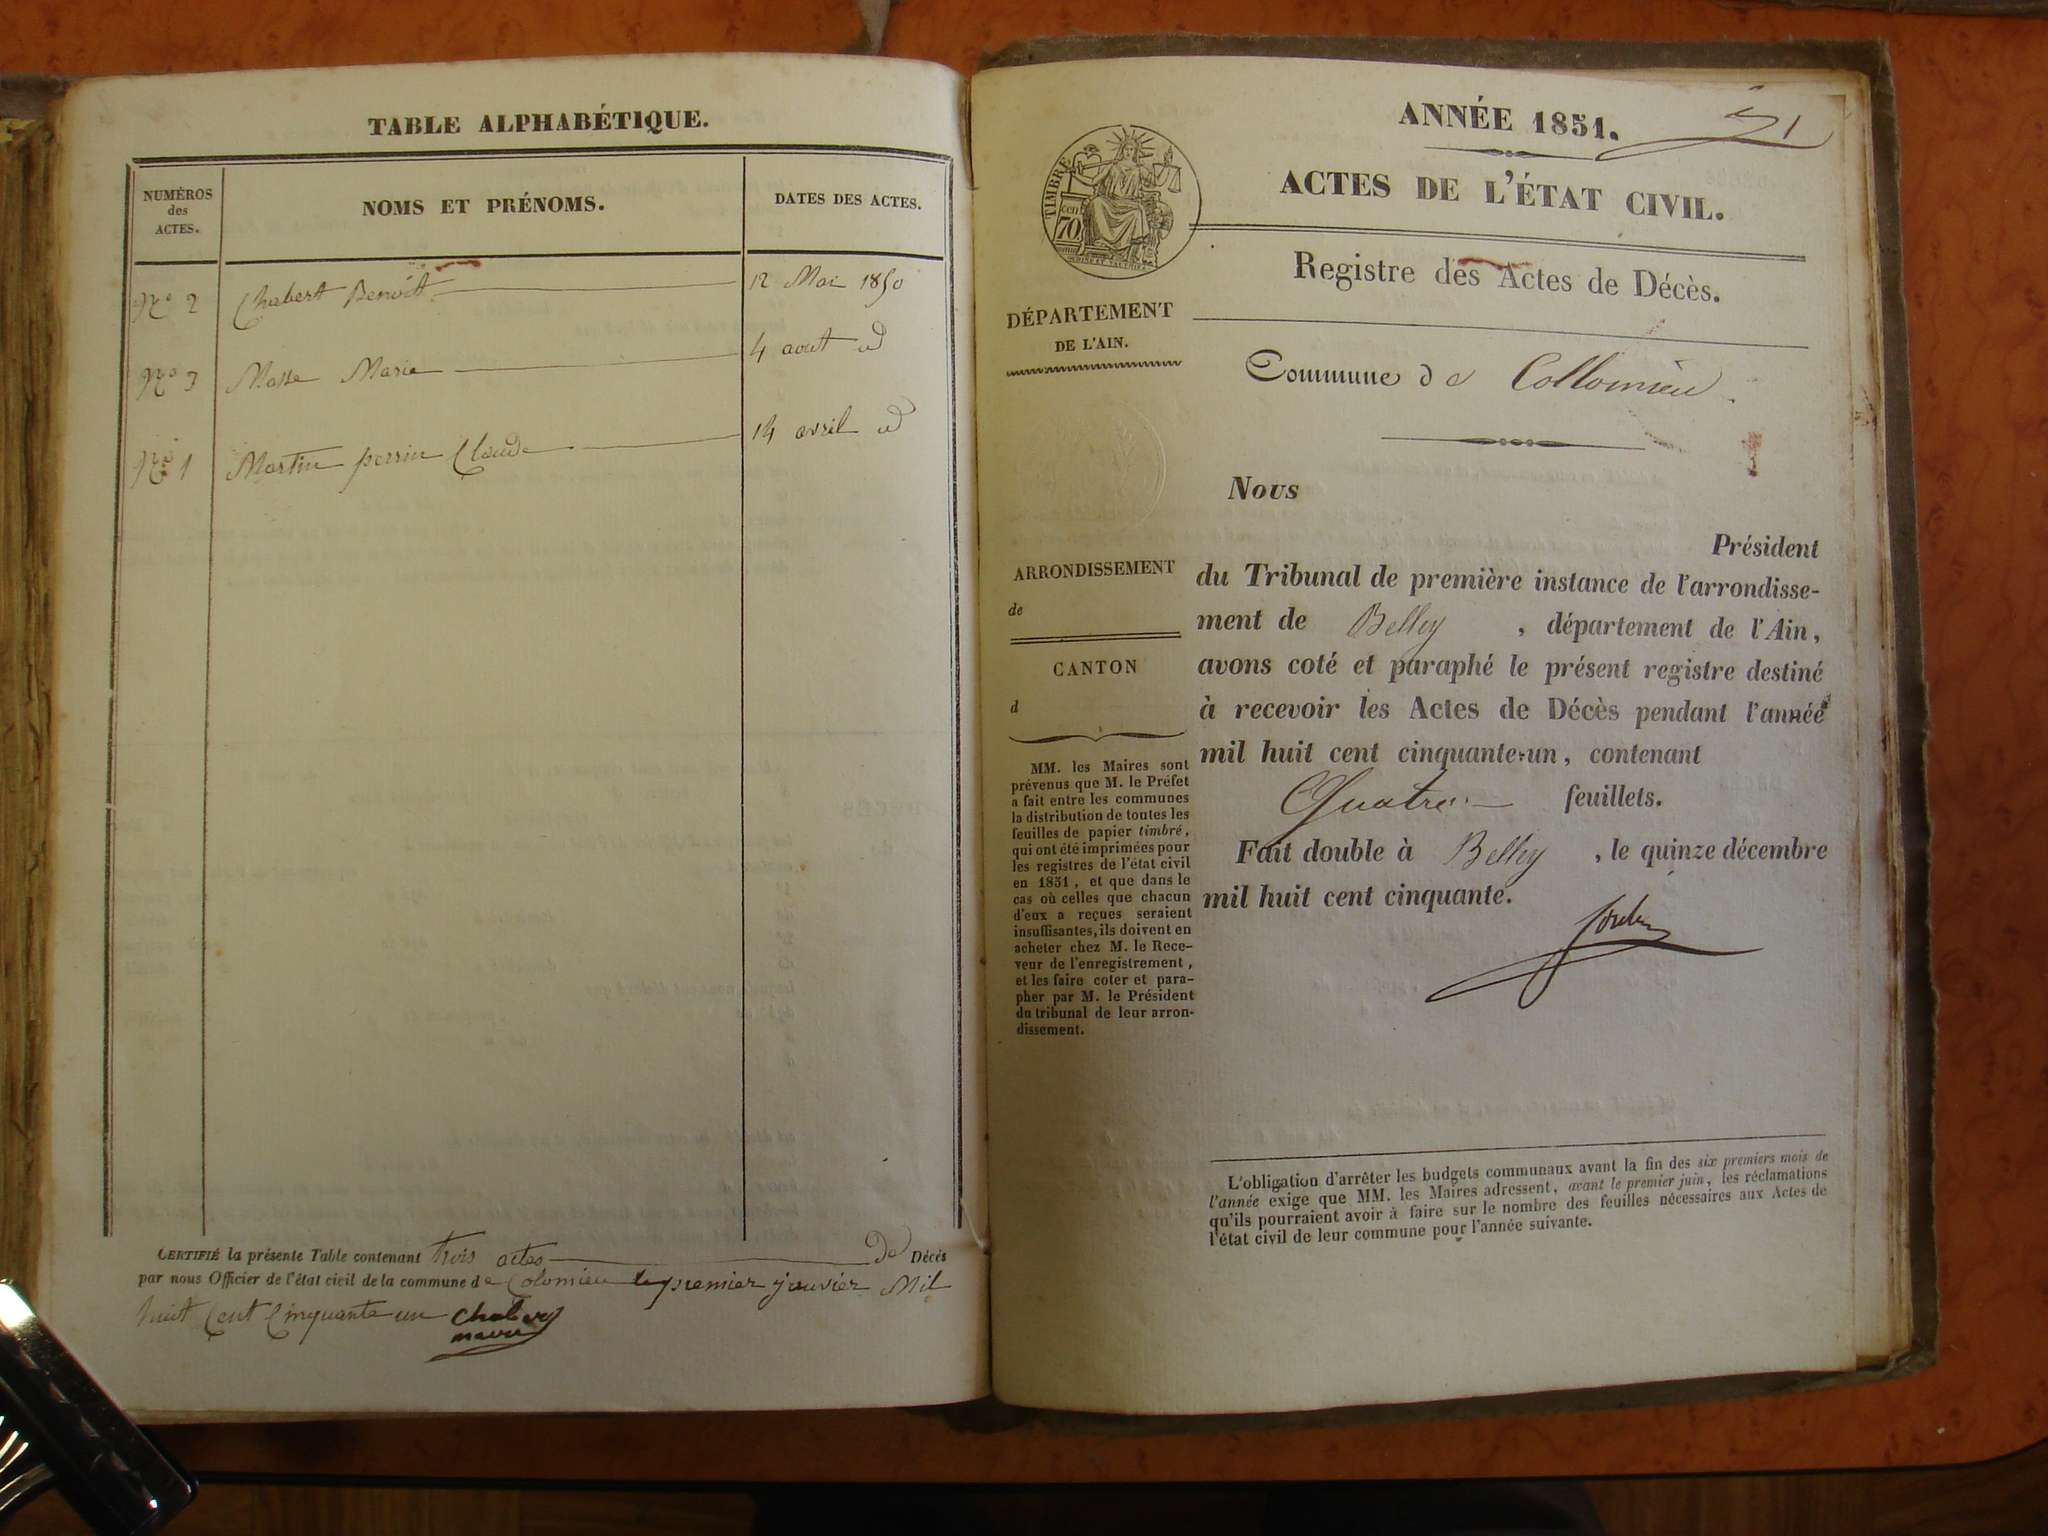 TABLE ALPHABÉTIQUE.
NUMÉROS
des
ACTES.
NOMS ET PRÉNOMS.
DATES DES ACTES.
N.o 2 Chabert Benoit 12 Mai 1850
N.o 3 Masse Marie 4 aout id
N.o 1 Martin perrin Claude 14 avril id
CERTIFIÉ la présente Table contenant trois actes De Décès
par nous Officier de l'état civil de la commune de Colomieu le premier janvier Mil
huit Cent Cinquante un
maire
ANNÉE 1851.
ACTES DE L'ÉTAT CIVIL.
TIMBRE
70
cent
Registre des Actes de Décès.
DÉPARTEMENT
DE L'AIN.
Commune de Collomieu
Nous
Président
ARRONDISSEMENT
de
CANTON
d
du Tribunal de première instance de l'arrondisse-
ment de Belley, département de l'Ain,
avons coté et paraphé le présent registre destiné
à recevoir les Actes de Décès pendant l'année
mil huit cent cinquante-un, contenant
Quatre feuillets.
Fait double à Belley, le quinze décembre
mil huit cent cinquante.
MM. les Maires sont
prévenus que M. le Préfet
a fait entre les communes
la distribution de toutes les
feuilles de papier timbré,
qui ont été imprimées pour
les registres de l'état civil
en 1851, et que dans le
cas où celles que chacun
d'eux a reçues seraient
insuffisantes, ils doivent en
acheter chez M. le Rece-
veur de l'enregistrement,
et les faire coter et para-
pher par M. le Président
du tribunal de leur arron-
dissement.
L'obligation d'arrêter les budgets communaux avant la fin des six premiers mois de
l'année exige que MM. les Maires adressent, avant le premier juin, les réclamations
qu'ils pourraient avoir à faire sur le nombre des feuilles nécessaires aux Actes de
l'état civil de leur commune pour l'année suivante.